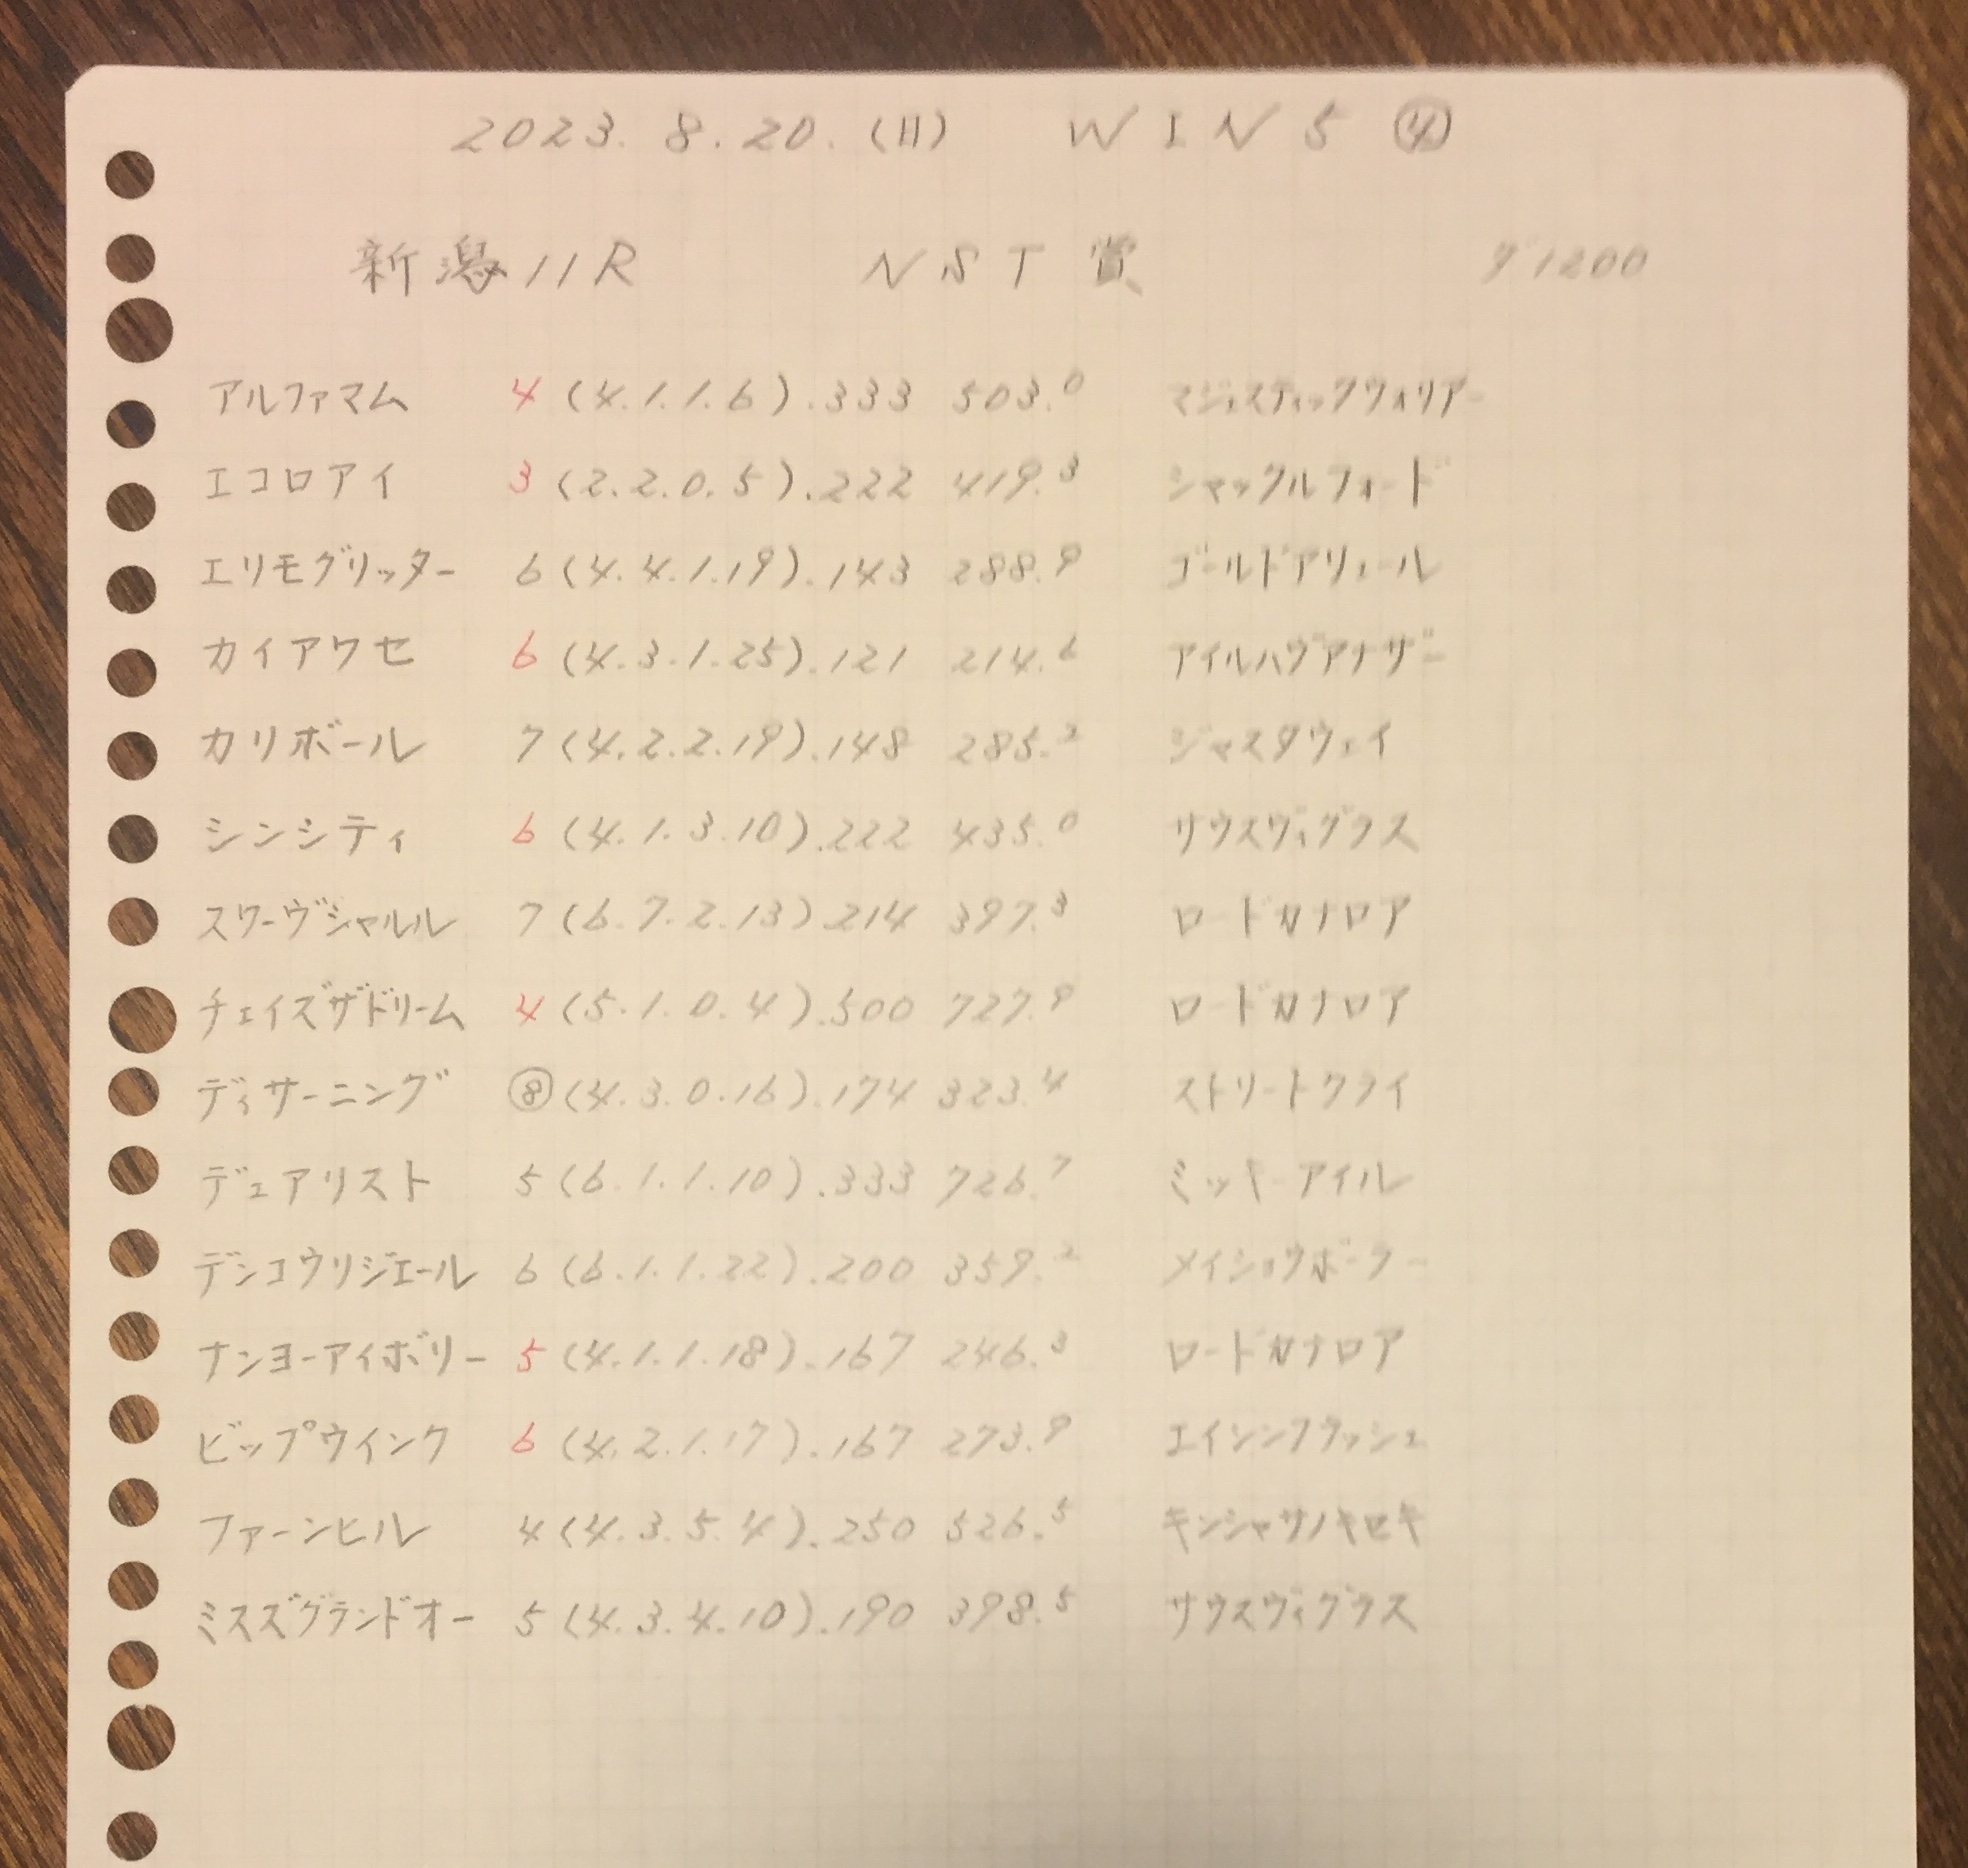 2023. 8. 20. (11) WIN5 ④
新潟11R NST賞 ダ1200
アルファマム 4 (4.1.1.6) .333 503.0 マジェスティックウォリアー
エコロアイ 3 (2.2.0.5) .222 419.3 シャックルフォード
エリモグリッター 6 (4.4.1.19) .143 288.9 ゴールドアリュール
カイアワセ 6 (4.3.1.25) .121 214.6 アイルハヴアナザー
カリボール 7 (4.2.2.19) .148 285.2 ジャスタウェイ
シンシティ 6 (4.1.3.10) .222 435.0 サウスヴィグラス
スワーヴシャルル 7 (6.7.2.13) .214 397.3 ロードカナロア
チェイスザドリーム 4 (5.1.0.4) .500 727.9 ロードカナロア
ディサーニング ⑧ (4.3.0.16) .174 323.4 ストリートクライ
デュアリスト 5 (6.1.1.10) .333 726.7 ミッキーアイル
デンコウリジエール 6 (6.1.1.22) .200 359.2 メイショウボーラー
ナンヨーアイボリー 5 (4.1.1.18) .167 246.3 ロードカナロア
ビップウインク 6 (4.2.1.17) .167 273.9 エイシンフラッシュ
ファーンヒル 4 (4.3.5.4) .250 526.5 キンシャサノキセキ
ミスズグランドオー 5 (4.3.4.10) .190 398.5 サウスヴィグラス